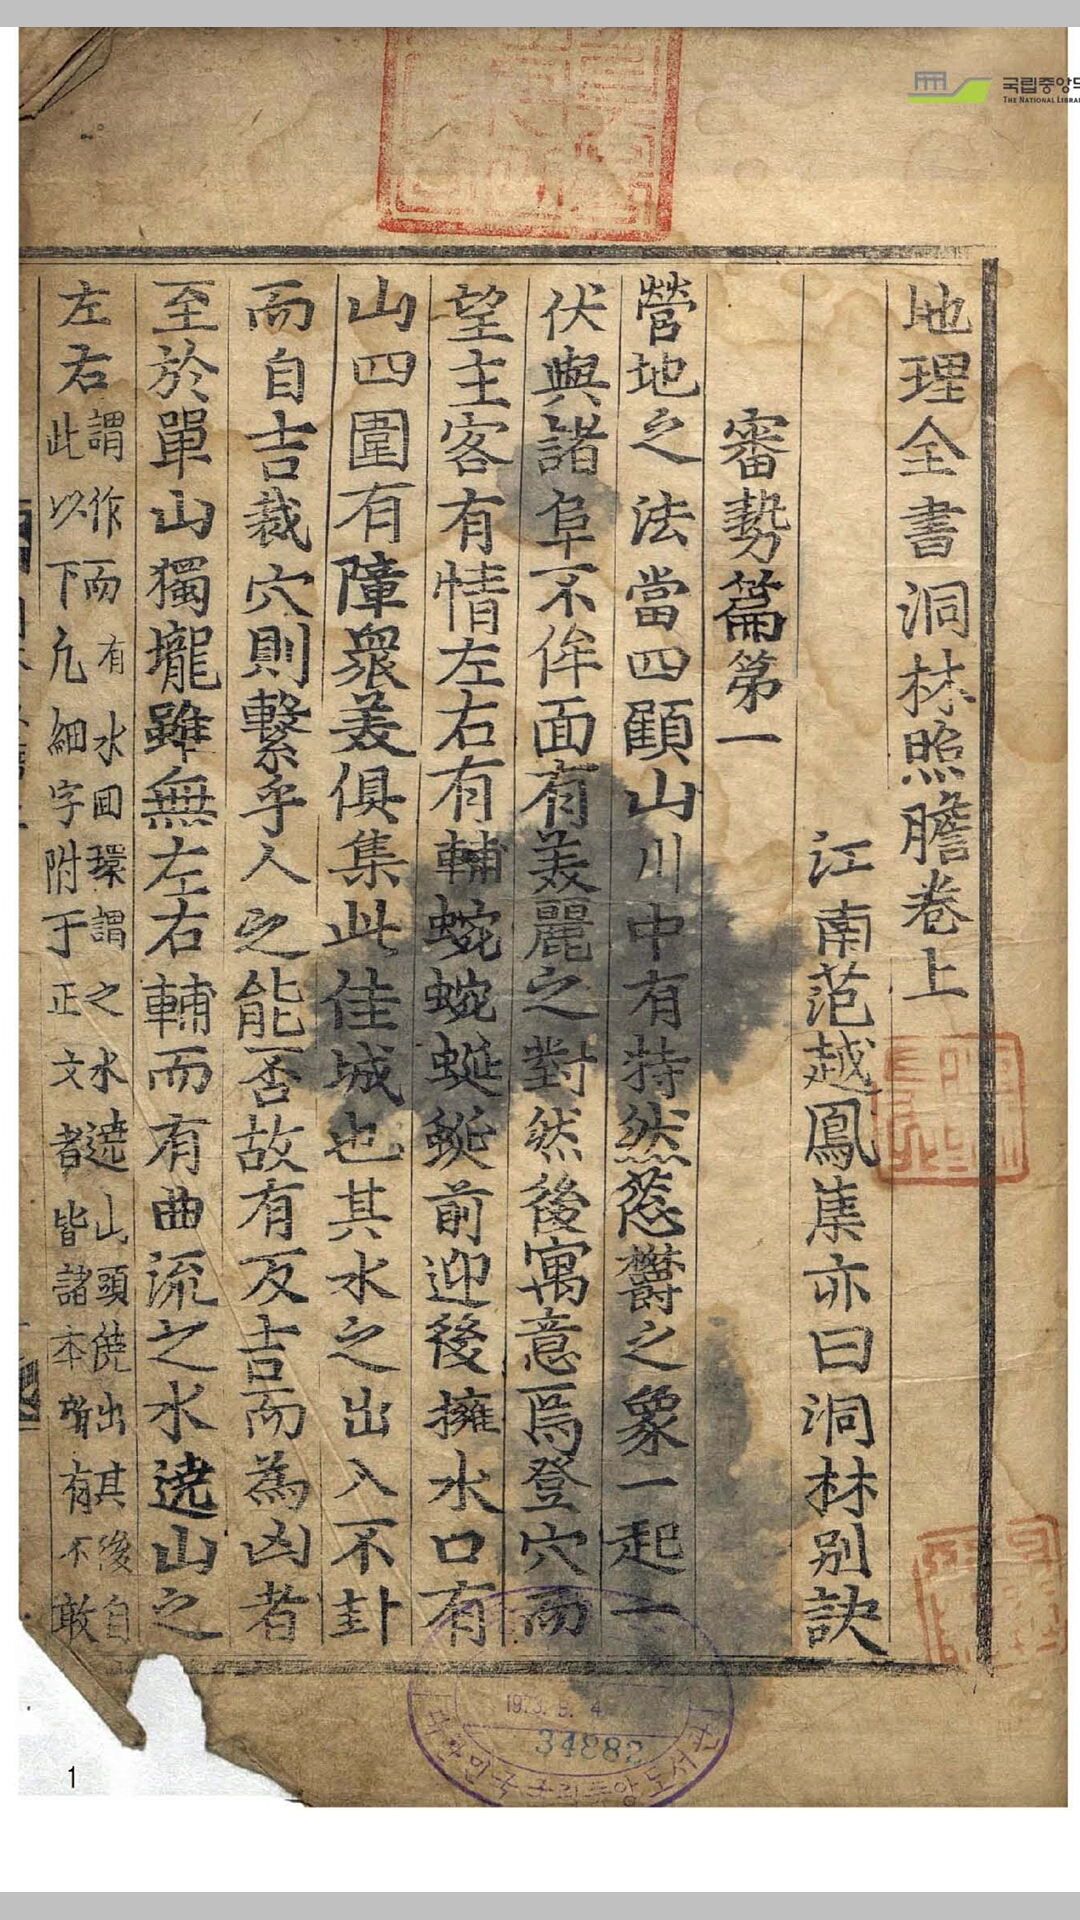 地理全書洞林照膽卷上
江南范越鳳集亦曰洞林別訣
審勢篇第一
營地之法當四顧山川中有特然蔥鬱之象一起一
伏與諸阜不侔面有美麗之對然後寓意焉登穴而
望主客有情左右有輔蜿蜿蜒蜒前迎後擁水口有
山四圍有障衆美俱集此佳城也其水之出入不卦
而自吉裁穴則繫乎人之能否故有反吉而為凶者
至於單山獨壠雖無左右輔而有曲流之水遶山之
左右
謂作而有水回環謂之水遶山頭饒出其後自
此以下凡細字附于正文者皆諸本所有不敢
국립중앙도
THE NATIONAL LIBRA
1973. 9. 4
34882
대한민국국립중앙도서관
1